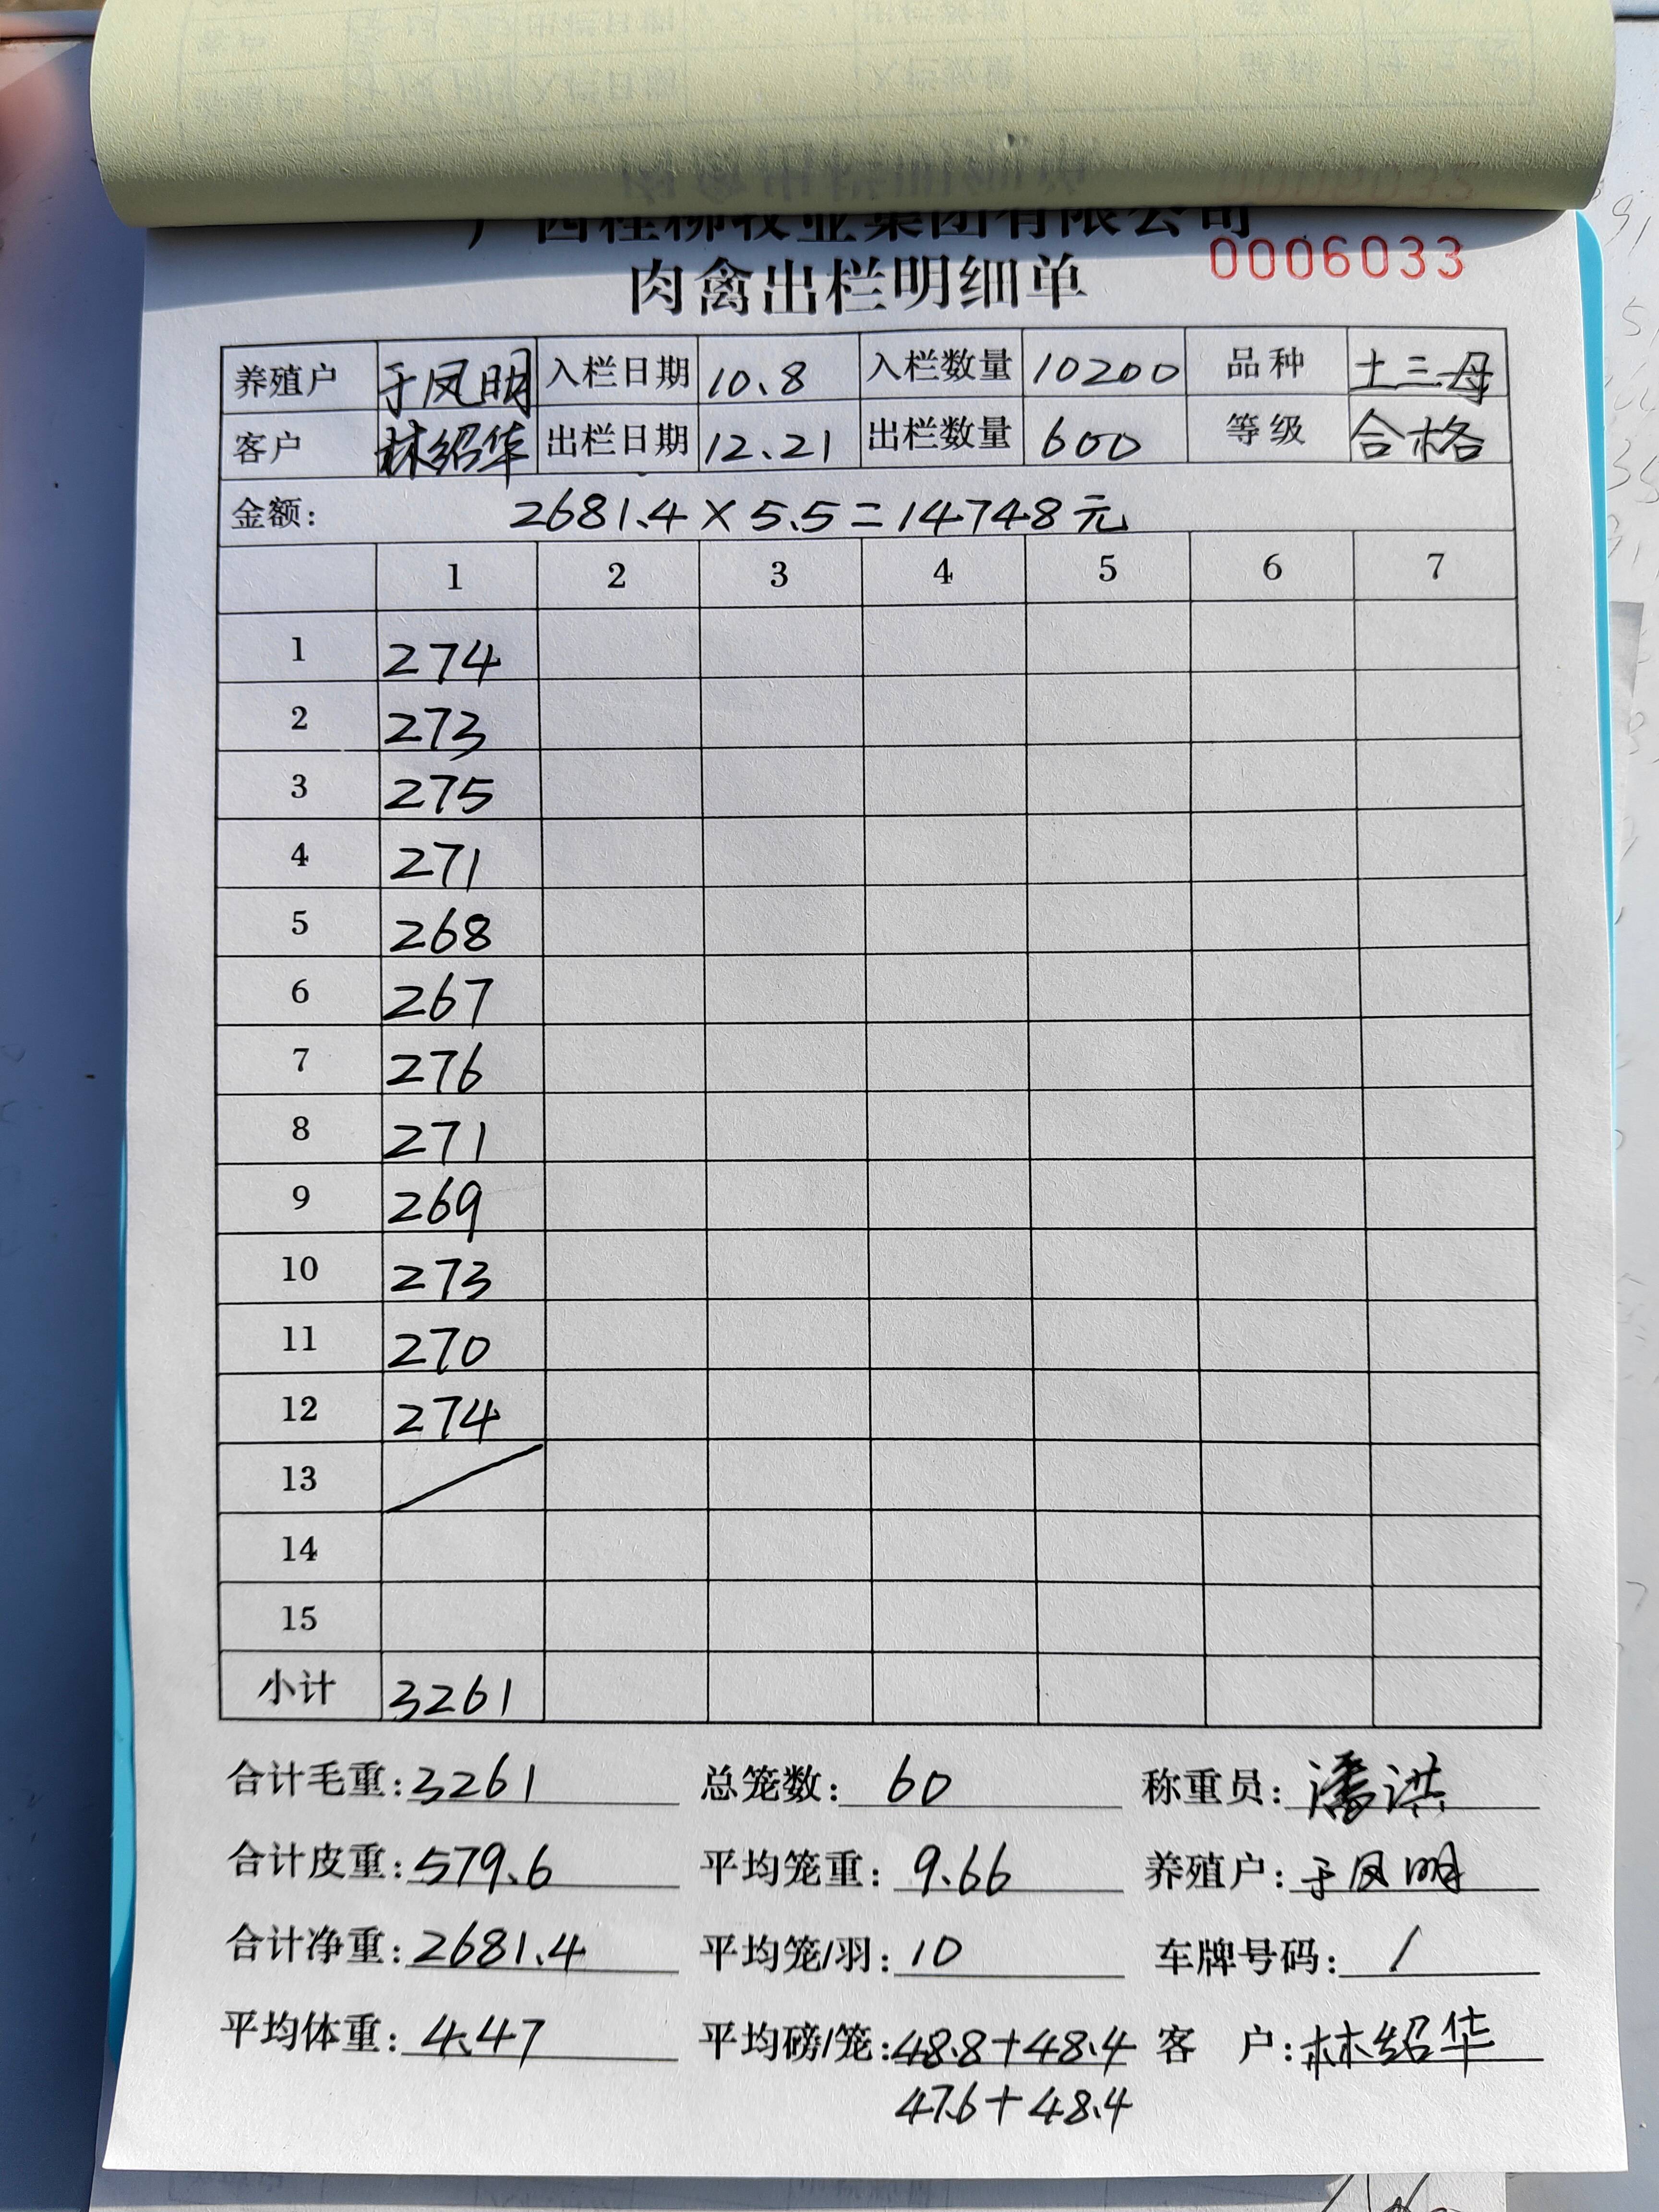 广西桂柳牧业集团有限公司
肉禽出栏明细单 0006033
养殖户 于凤明 入栏日期 10.8 入栏数量 10200 品种 土三母
客户 林绍华 出栏日期 12.21 出栏数量 600 等级 合格
金额: 2681.4×5.5=14748元
1 2 3 4 5 6 7
1 274
2 273
3 275
4 271
5 268
6 267
7 276
8 271
9 269
10 273
11 270
12 274
13 /
14
15
小计 3261
合计毛重:3261 总笼数: 60 称重员:潘洪
合计皮重:579.6 平均笼重: 9.66 养殖户:于凤明
合计净重:2681.4 平均笼/羽: 10 车牌号码: /
平均体重: 4.47 平均磅/笼:48.8+48.4 客 户:林绍华
47.6+48.4